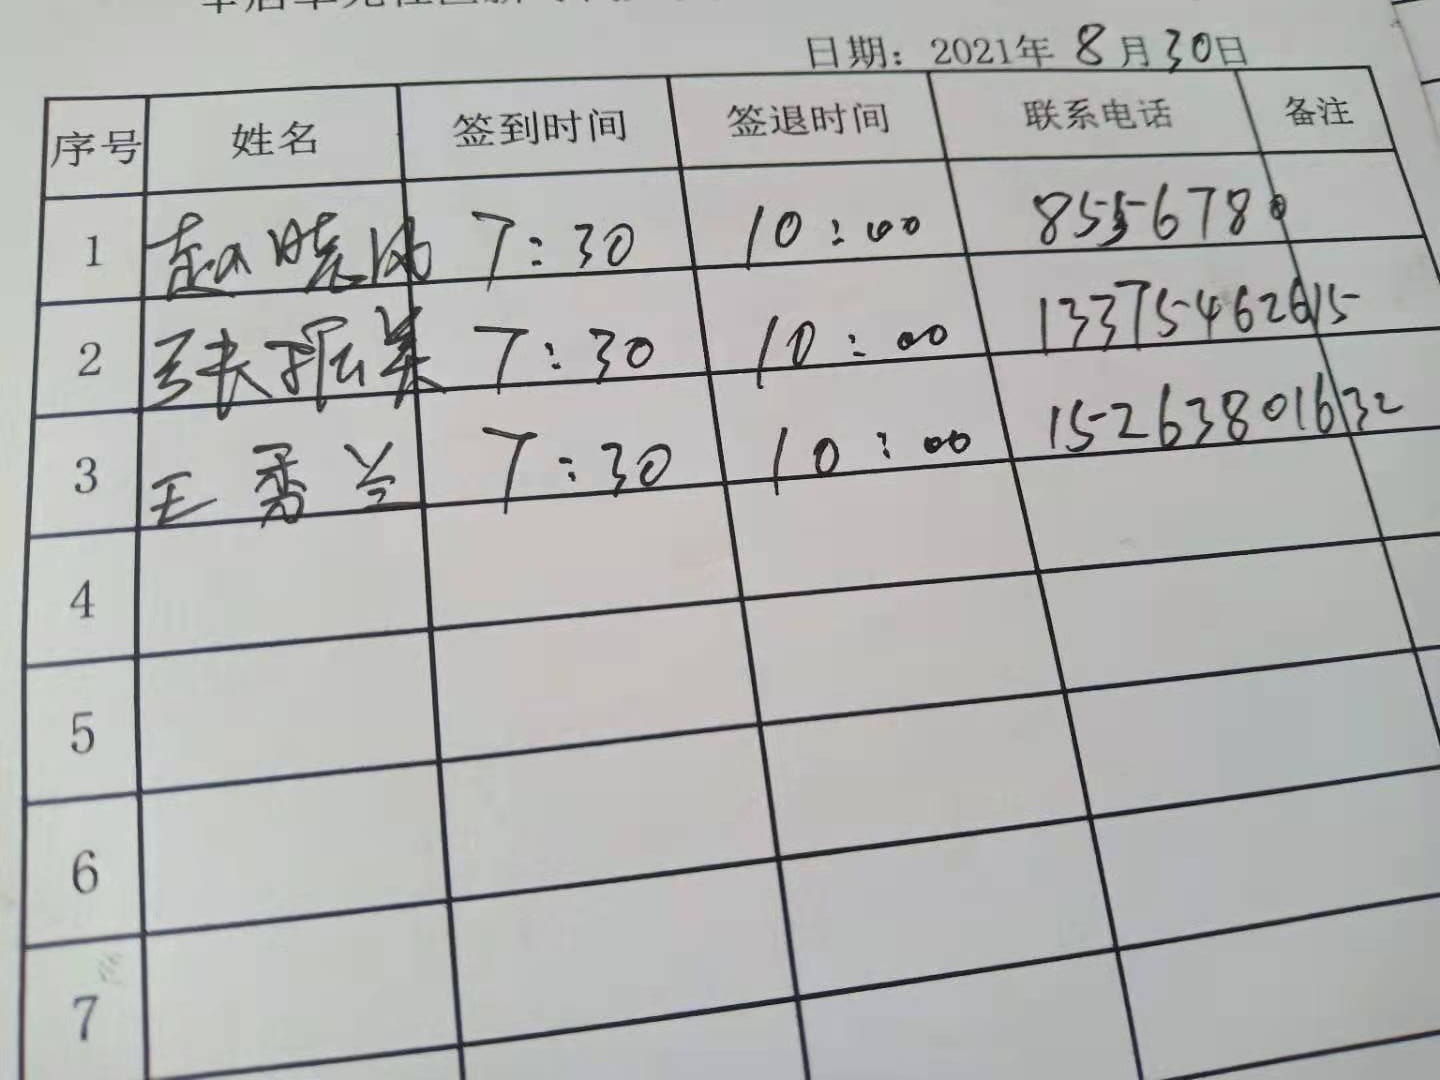 日期：2021年 8月30日
序号 姓名 签到时间 签退时间 联系电话 备注
1 赵晓 7:30 10:00 8555678
2 张振美 7:30 10:00 13375462615
3 王秀兰 7:30 10:00 15263801632
4
5
6
7